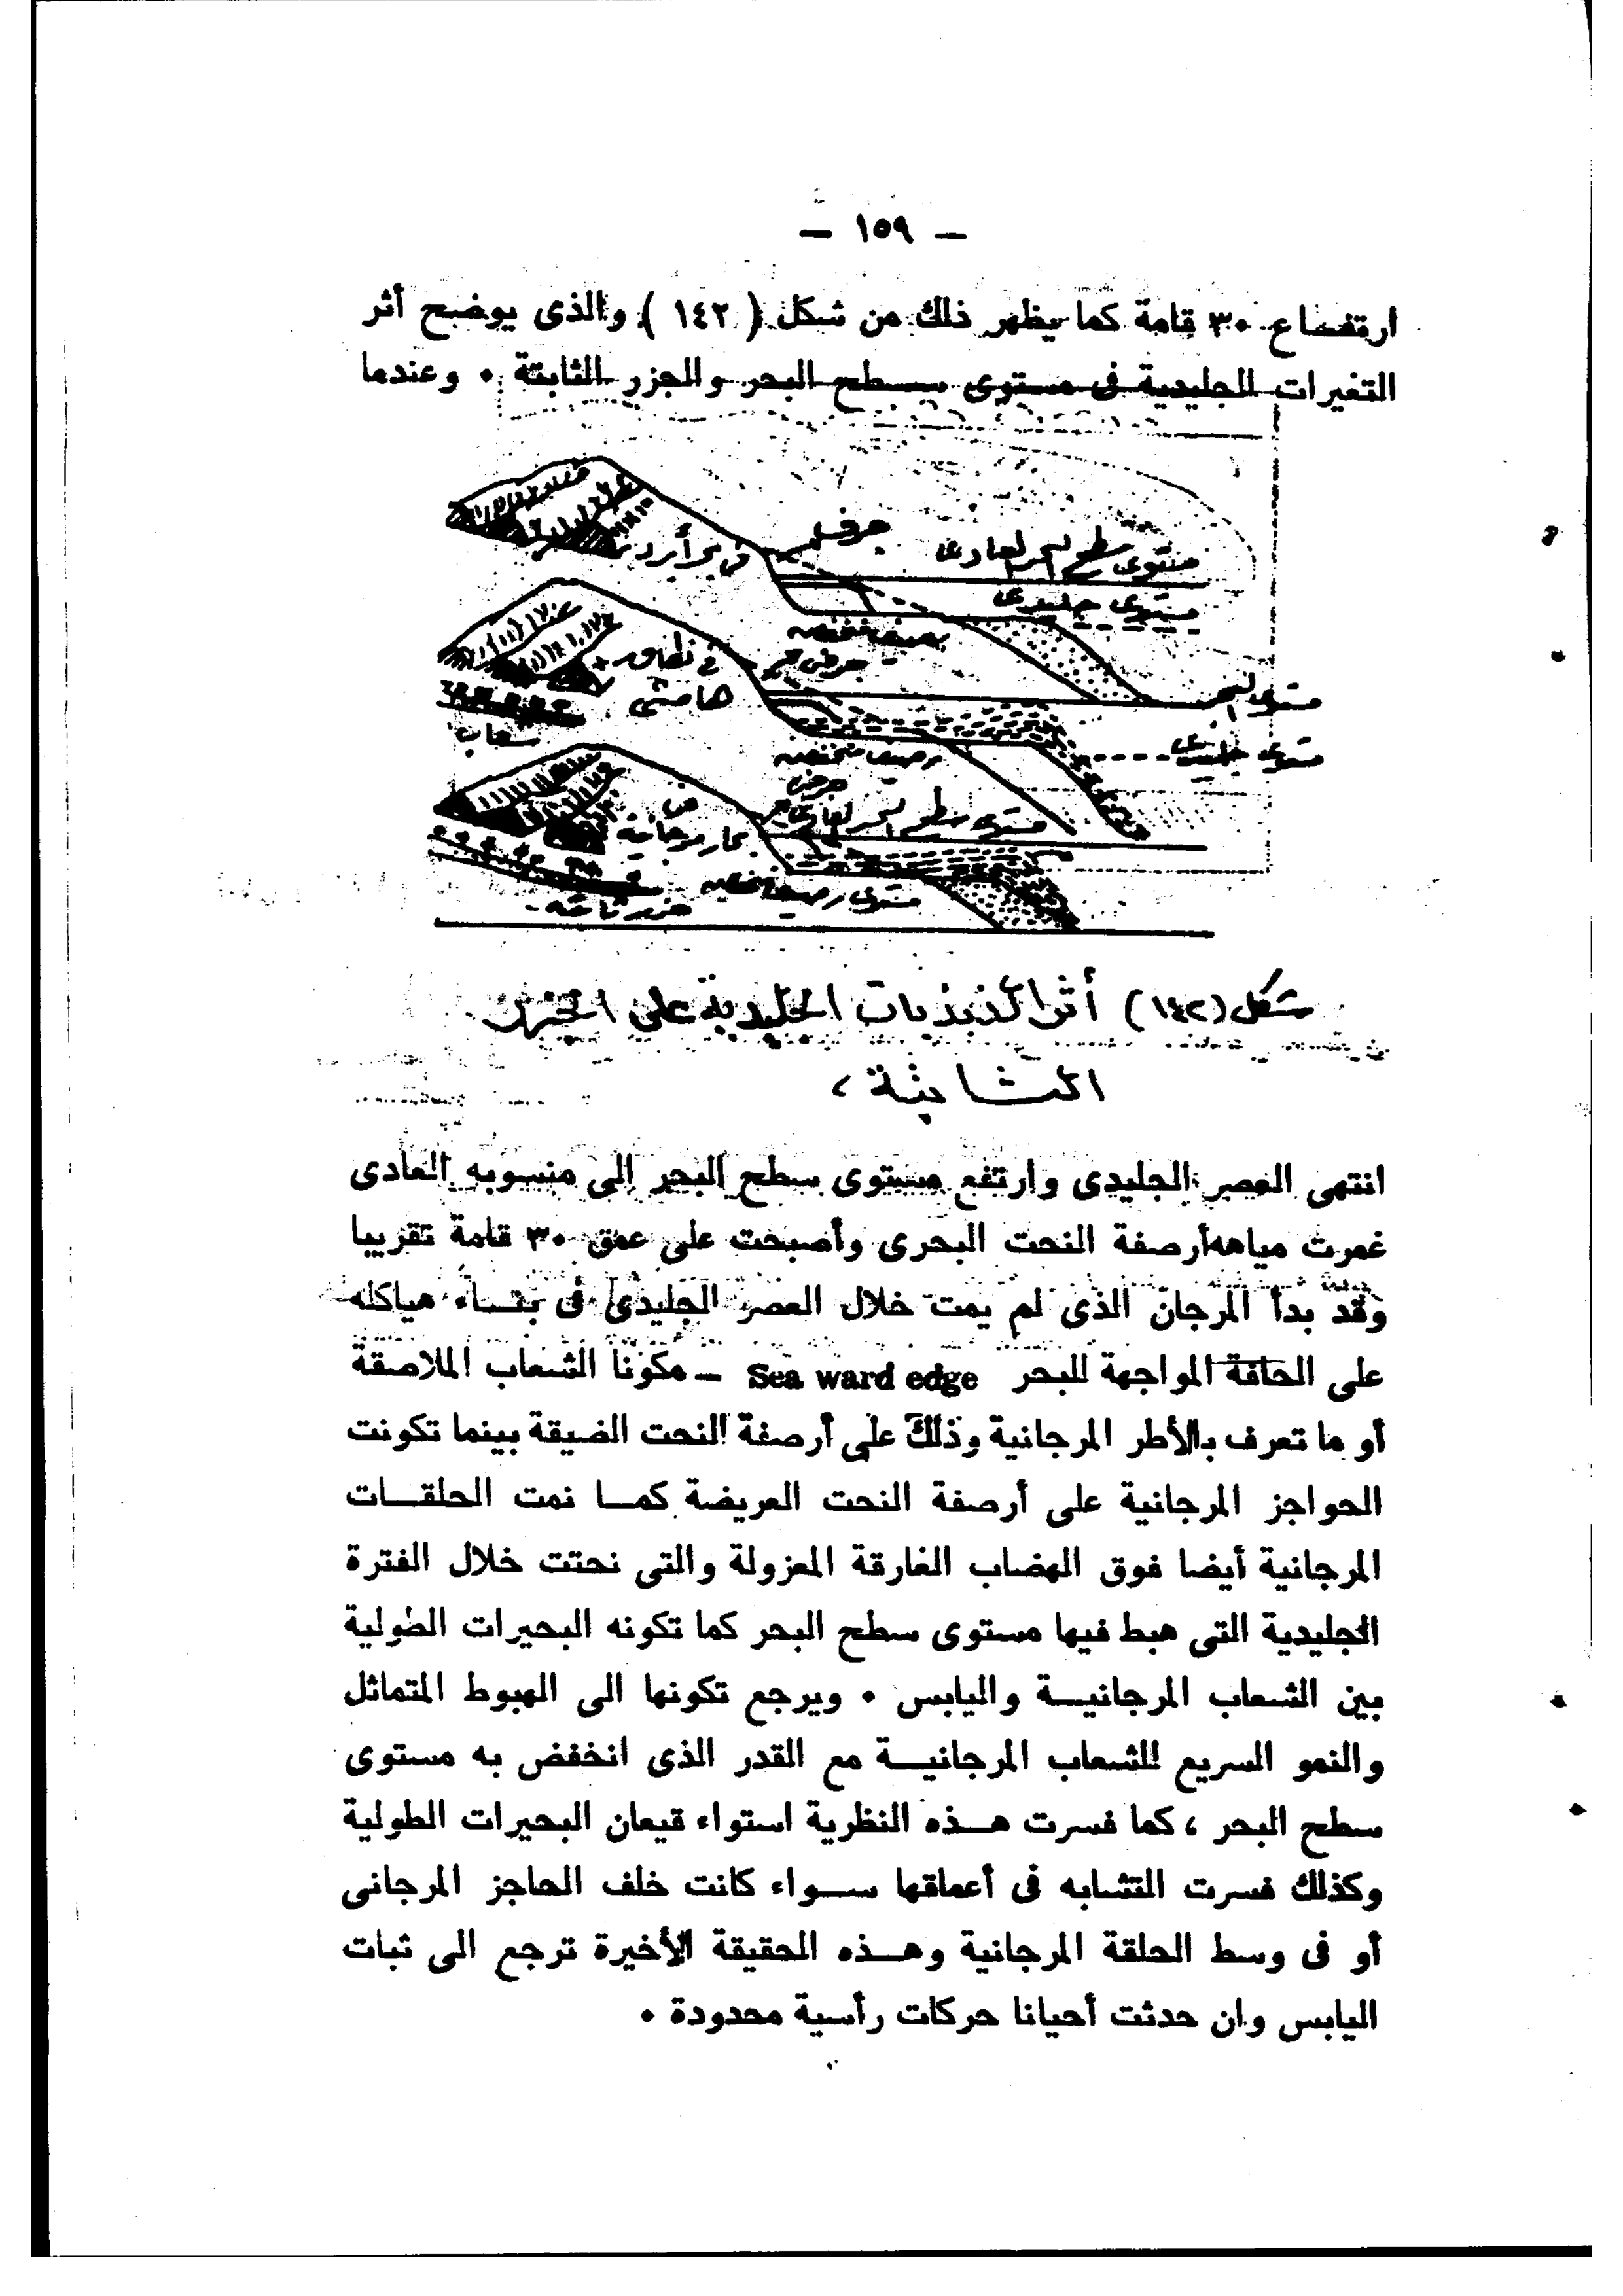 — ١٥٩ —
ارتفاع ٣٠ قامة كما يظهر ذلك من شكل ( ١٤٢ ) والذى يوضح أثر
التغيرات الجليدية فى مستوى سطح البحر والجزر الثابتة • وعندما
جرف
مستوى سطح البحر العادى
فى بحر أبرد
مستوى جليدى
رصيف منخفض
فى نطاق
جرف
هامشى
مستوى البحر
شعاب
مستوى جليدى
رصيف منخفض
جرف
مستوى سطح البحر العادى
بحار مرجانية
مستوى رصيف منخفض
جزر ثابتة
شكل (١٤٢) أثر الذبذبات الجليدية على الجزر
الثابتة ،
انتهى العصر الجليدى وارتفع مستوى سطح البحر إلى منسوبه العادى
غمرت مياهه أرصفة النحت البحرى وأصبحت على عمق ٣٠ قامة تقريبا
وقد بدأ المرجان الذى لم يمت خلال العصر الجليدى فى بنـاء هياكله
على الحافة المواجهة للبحر Sea ward edge — مكونا الشعاب الملاصقة
أو ما تعرف بالأطر المرجانية وذلك على أرصفة النحت الضيقة بينما تكونت
الحواجز المرجانية على أرصفة النحت العريضة كمـا نمت الحلقـات
المرجانية أيضا فوق الهضاب الغارقة المعزولة والتى نحتت خلال الفترة
الجليدية التى هبط فيها مستوى سطح البحر كما تكونه البحيرات الطولية
بين الشعاب المرجانيـة واليابس • ويرجع تكونها الى الهبوط المتماثل
والنمو السريع للشعاب المرجانيـة مع القدر الذى انخفض به مستوى
سطح البحر ، كما فسرت هـذه النظرية استواء قيعان البحيرات الطولية
وكذلك فسرت التشابه فى أعماقها سـواء كانت خلف الحاجز المرجانى
أو فى وسط الحلقة المرجانية وهـذه الحقيقة الأخيرة ترجع الى ثبات
اليابس وان حدثت أحيانا حركات رأسية محدودة •